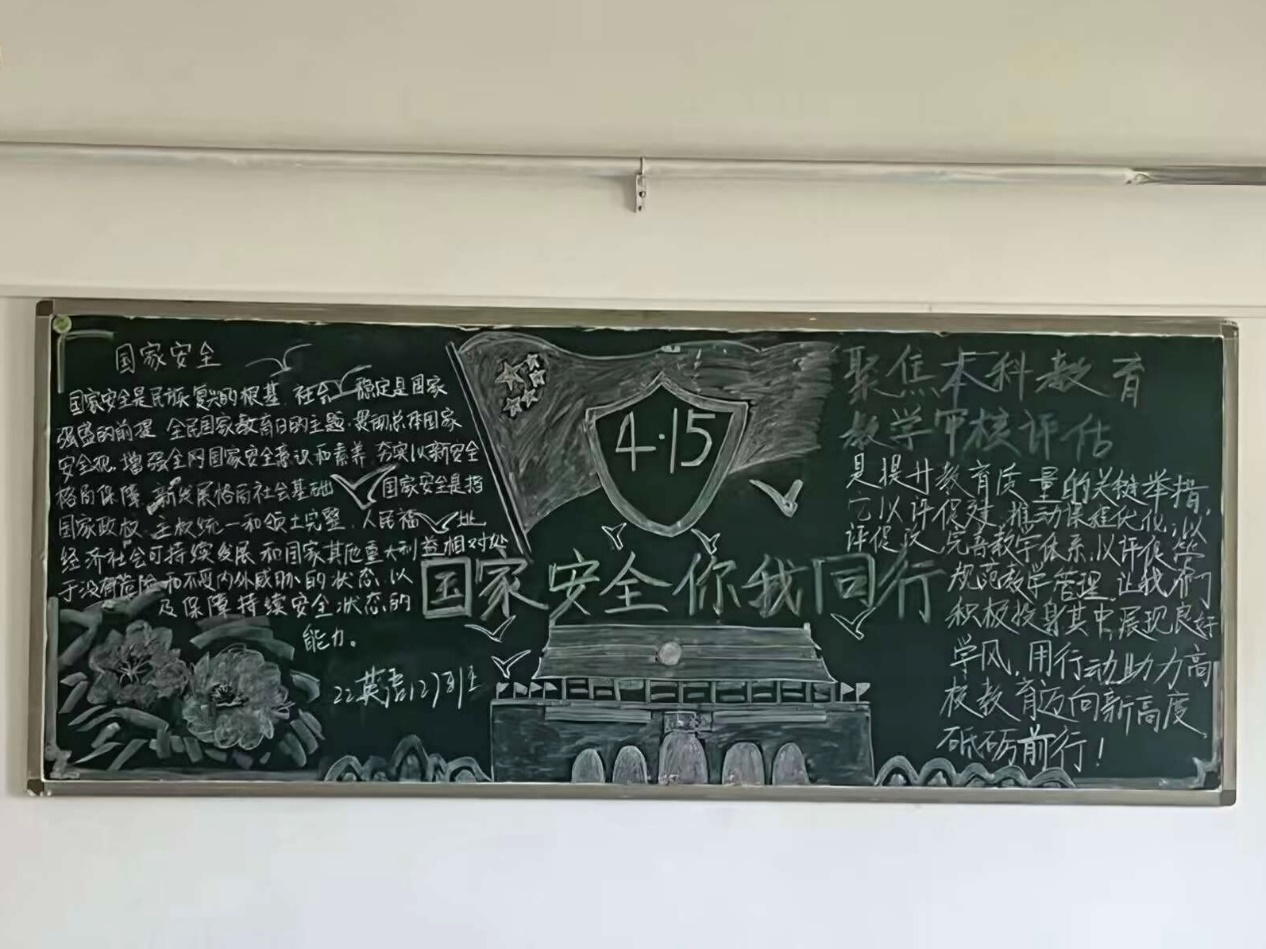 国家安全
国家安全是民族复兴的根基 社会 稳定是国家
强盛的前提 全民国家教育日的主题 贯彻总体国家
安全观 增强全网国家安全意识和素养 夯实以新安全
格局保障 新发展格局社会基础 国家安全是指
国家政权 主权统一和领土完整 人民福 祉
经济社会可持续发展和国家其他重大利益相对处
于没有危险和不受内外威胁的状态 以
及保障持续安全状态的
能力。
22英语(2)班
4·15
国家安全你我同行
聚焦本科教育
教学审核评估
是提升教育质量的关键举措,
它以评促建 推动保准优化,以
评促改 完善教学体系,以评促
规范教学管理 让我们
积极投身其中,展现良好
学风,用行动助力高
校教育迈向新高度
砥砺前行!